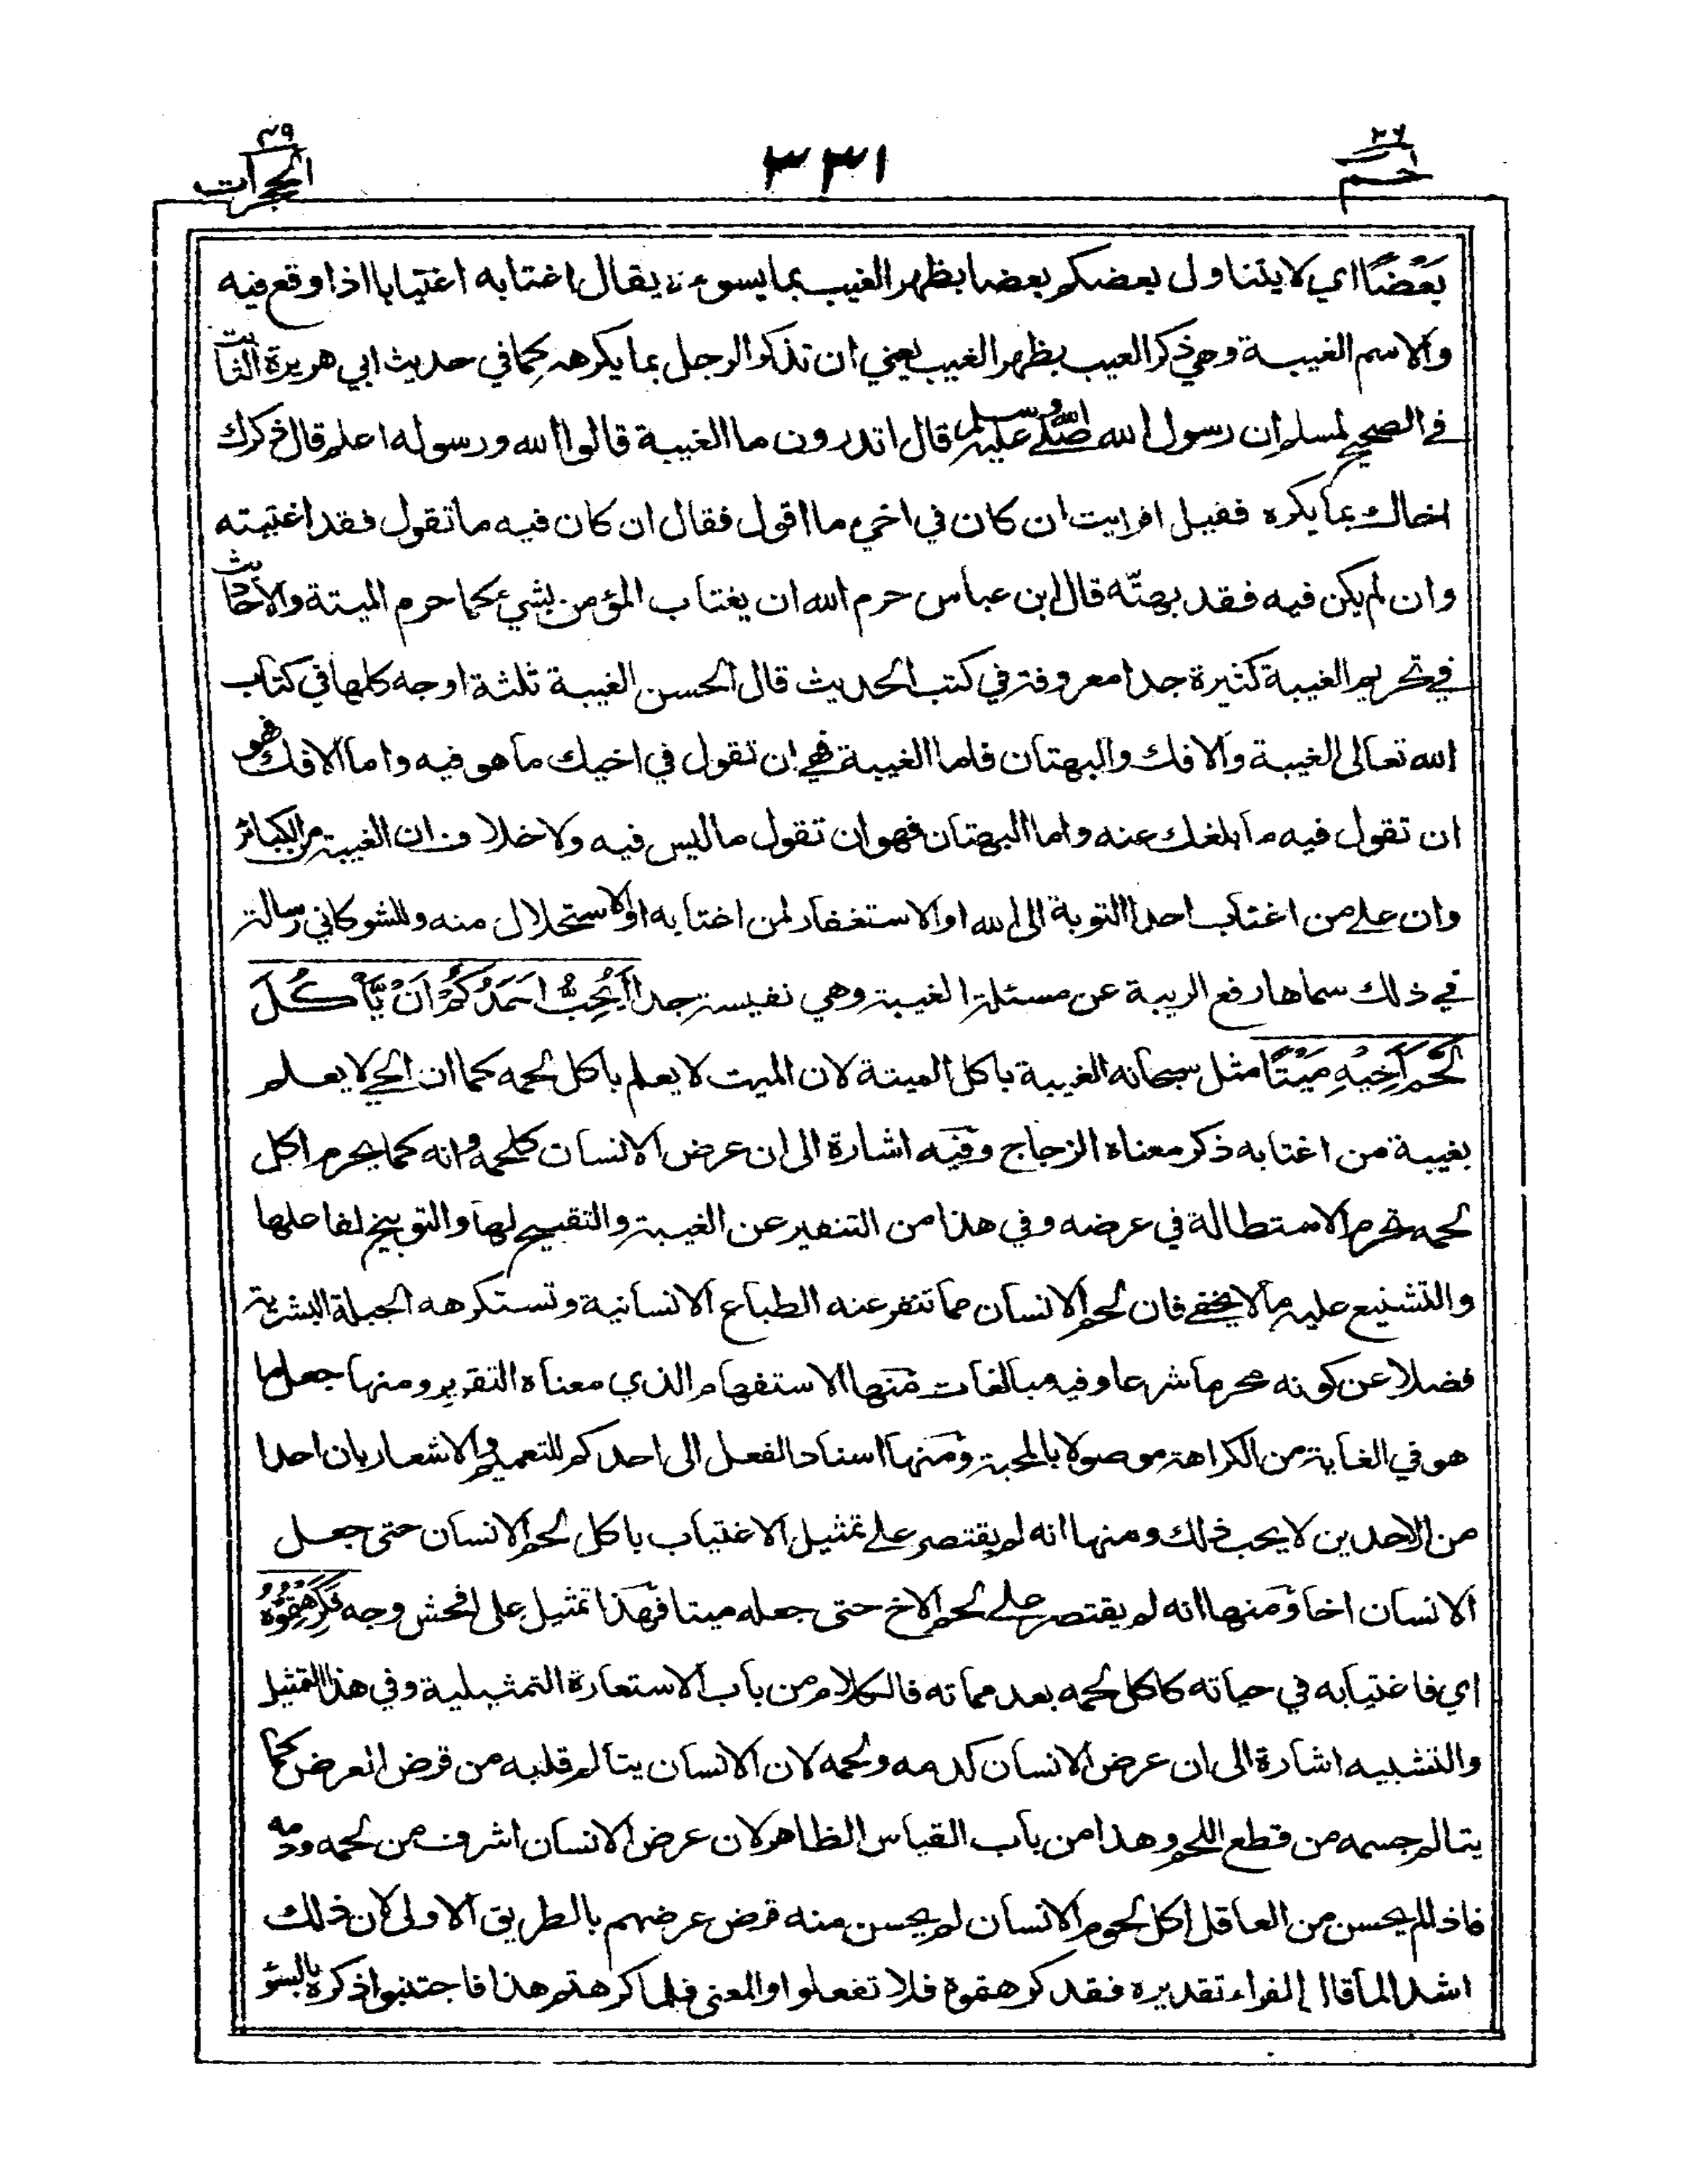 ٢٦ حم
٣٣١
٤٩ الحجرات
بَعْضًا اي لا يتناول بعضكم بعضا بظهر الغيب بما يسوءه يقال اغتابه اغتيابا اذا وقع فيه
والاسم الغيبة وهي ذكر العيب بظهر الغيب يعني ان تذكر الرجل بما يكرهه كما في حديث ابي هريرة الثابت
في الصحيح لمسلم ان رسول الله صلى الله عليه وسلم قال اتدرون ما الغيبة قالوا الله ورسوله اعلم قال ذكرك
اخاك بما يكره فقيل افرايت ان كان في اخي ما اقول فقال ان كان فيه ما تقول فقد اغتبته
وان لم يكن فيه فقد بهتّه قال ابن عباس حرم الله ان يغتاب المؤمن بشيء كما حرم الميتة والأحاديث
في تحريم الغيبة كثيرة جدا معروفة في كتب الحديث قال الحسن الغيبة ثلثة اوجه كلها في كتاب
الله تعالى الغيبة والافك والبهتان فاما الغيبة فهي ان تقول في اخيك ما هو فيه واما الافك فهو
ان تقول فيه ما بلغك عنه واما البهتان فهو ان تقول ما ليس فيه ولا خلاف ان الغيبة من الكبائر
وان على من اغتاب احدا التوبة الى الله او الاستغفار لمن اختابه او الاستحلال منه وللشوكاني رسالة
في ذلك سماها رفع الريبة عن مسئلة الغيبة وهي نفيسة جدا أَيُحِبُّ اَحَدُكُمْ اَنْ يَّأْكُلَ
لَحْمَ اَخِيْهِ مَيْتًا مثل سبحانه الغيبة باكل الميتة لان الميت لا يعلم باكل لحمه كما ان الحي لا يعلم
بغيبة من اغتابه ذكر معناه الزجاج وفيه اشارة الى ان عرض الانسان كلحمه وانه كما يحرم اكل
لحمه تحرم الاستطالة في عرضه وفي هذا من التنفير عن الغيبة والتقبيح لها والتوبيخ لفاعلها
والتشنيع عليه ما لا يخفى فان لحم الانسان مما تنفر عنه الطباع الانسانية وتستكرهه الجبلة البشرية
فضلا عن كونه محرما شرعا وفيه مبالغات منها الاستفهام الذي معناه التقرير ومنها جعل ما
هو في الغاية من الكراهة موصولا بالمحبة ومنها اسناد الفعل الى احدكم للتعميم والاشعار بان احدا
من الاحدين لا يحب ذلك ومنها انه لم يقتصر على تمثيل الاغتياب باكل لحم الانسان حتى جعل
الانسان اخا ومنها انه لم يقتصر على لحم الاخ حتى جعله ميتا فهذا تمثيل على افحش وجه فَكَرِهْتُمُوْهُ
اي فاغتيابه في حياته كاكل لحمه بعد مماته فالكلام من باب الاستعارة التمثيلية وفي هذا التمثيل
والتشبيه اشارة الى ان عرض الانسان كدمه ولحمه لان الانسان يتالم قلبه من قرض العرض كما
يتالم جسمه من قطع اللحم وهذا من باب القياس الظاهر لان عرض الانسان اشرف من لحمه ودمه
فاذا لم يحسن من العاقل اكل لحوم الانسان لم يحسن منه قرض عرضهم بالطريق الاولى لان ذلك
اشد الما قال الفراء تقديره فقد كرهتموه فلا تفعلوا والمعنى فلما كرهتم هذا فاجتنبوا ذكره بالسؤ